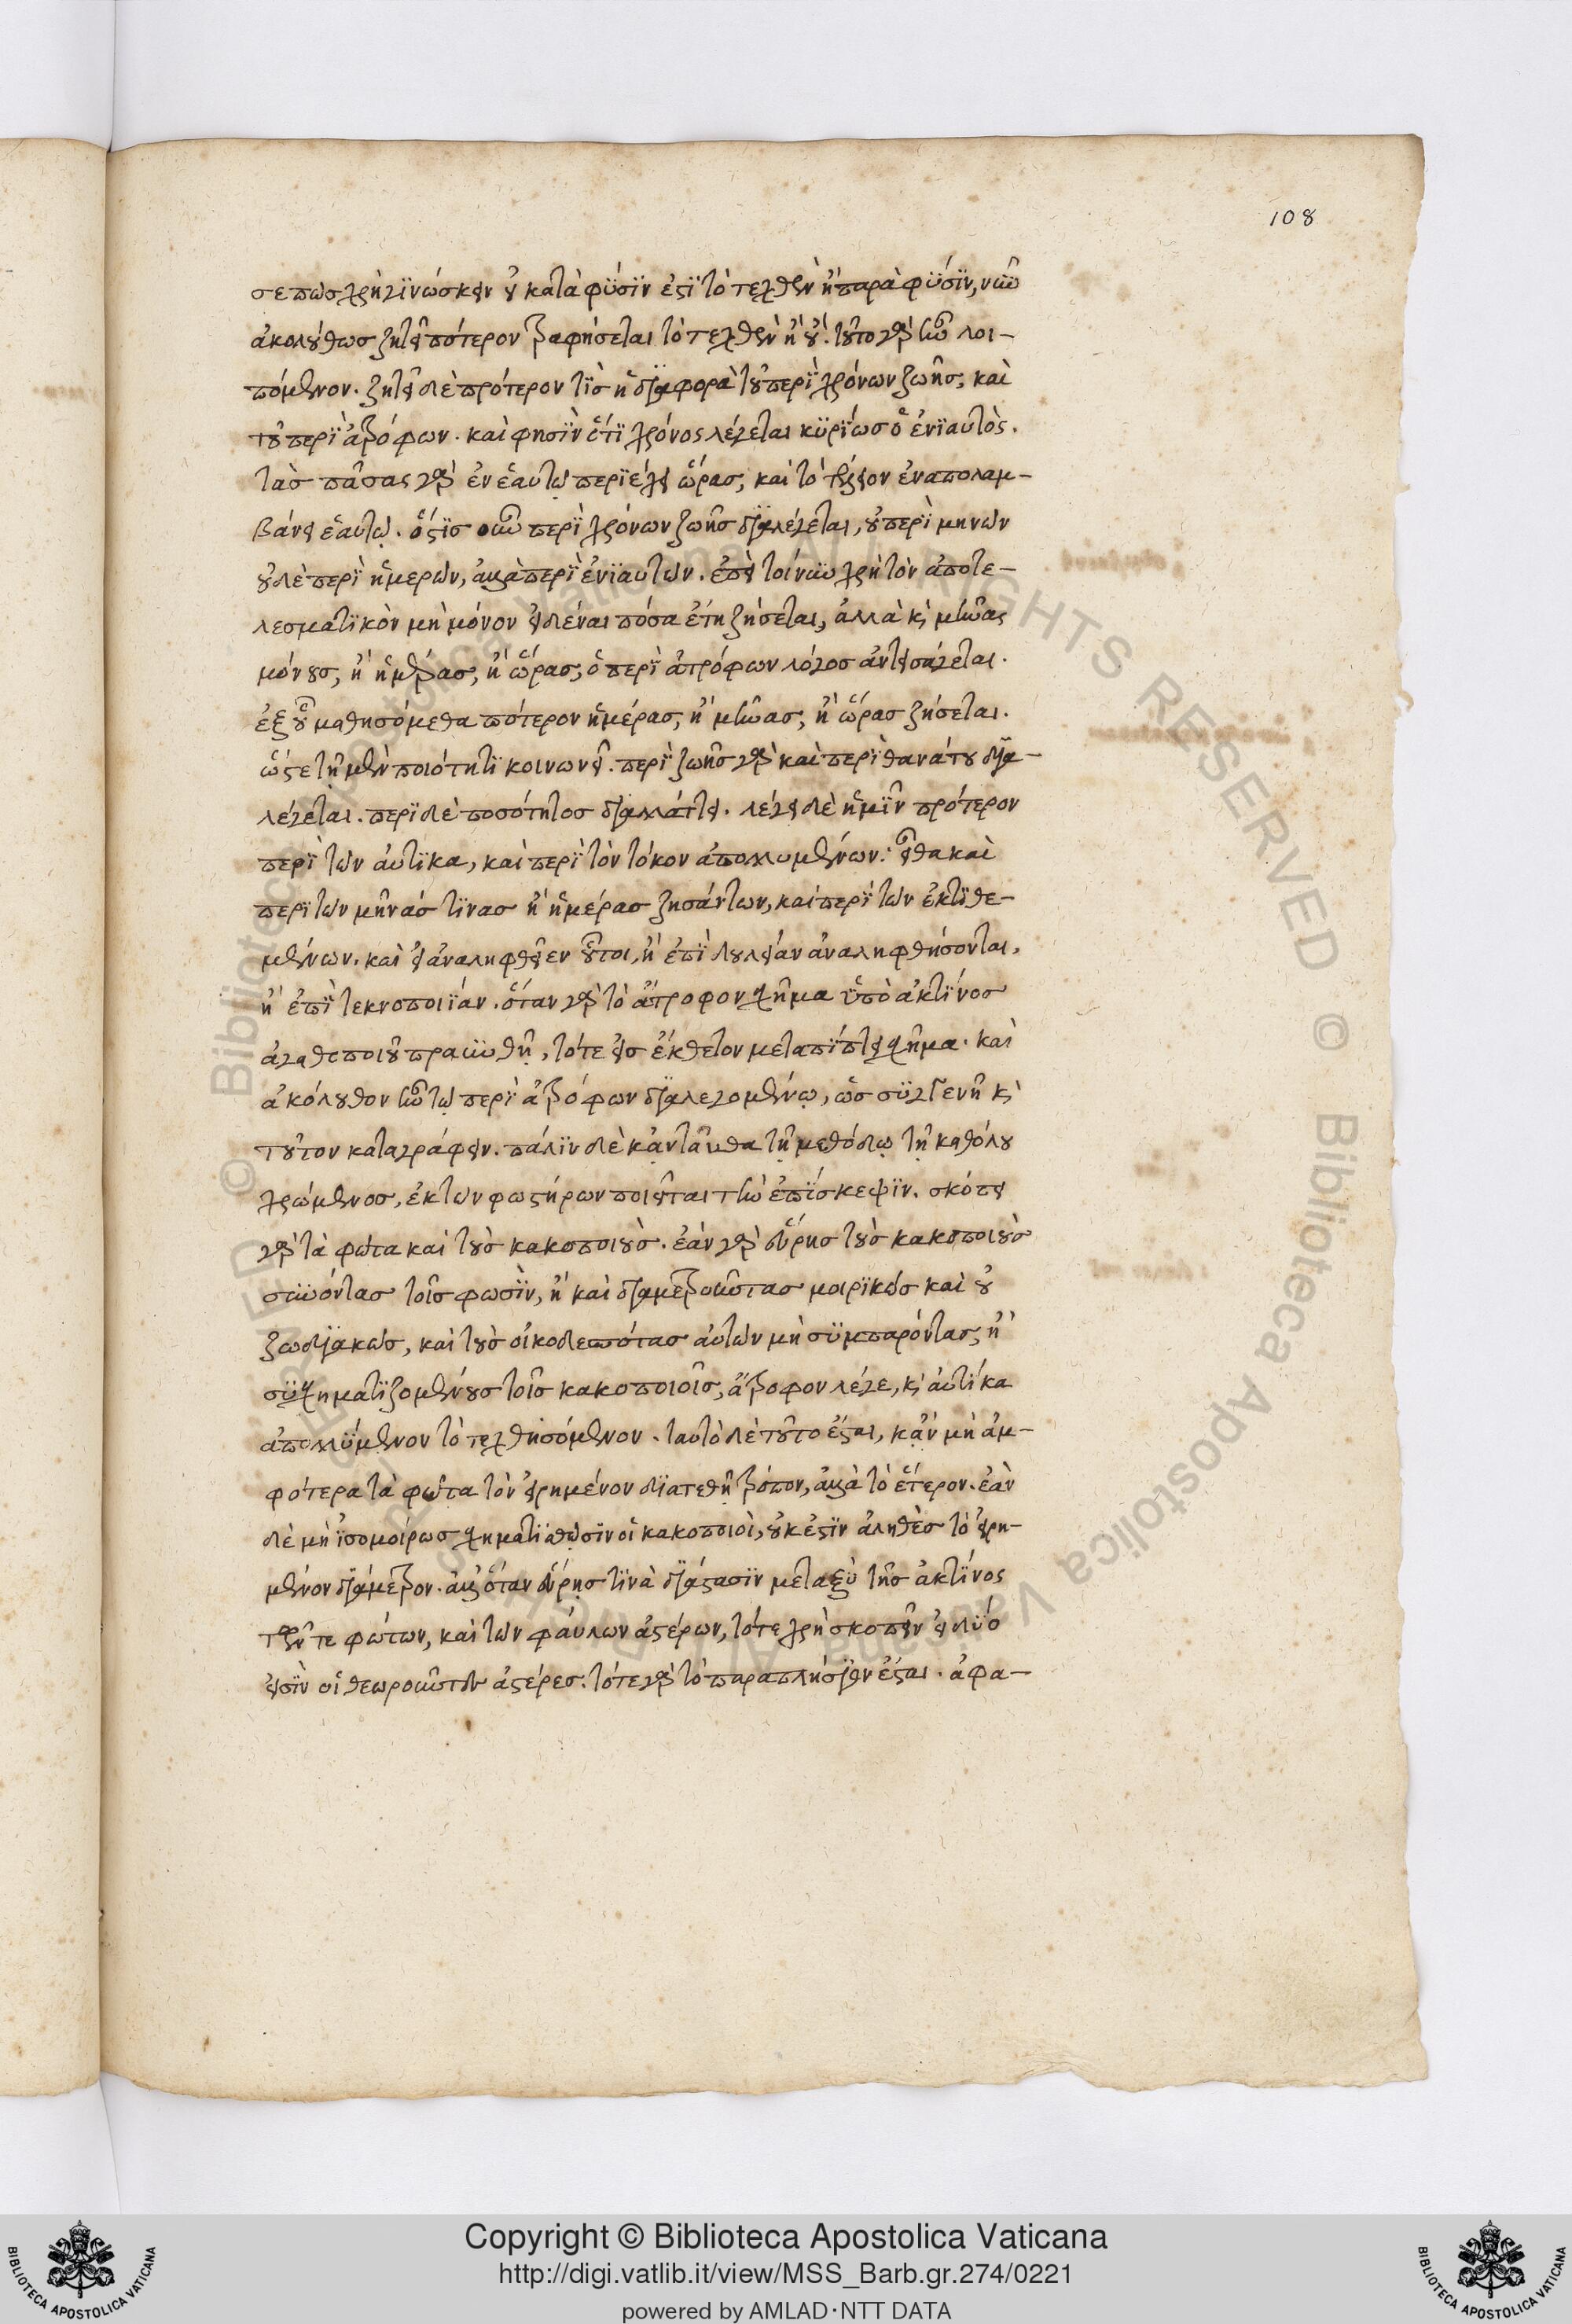 108
σε πῶς χρὴ γϊνώσκειν οὐ κατὰ φΰσϊν ἐστϊ τὸ τεχθὲν ἢ παρὰ φΰσϊν, νῦν
ἀκολούθως ζητεῖ πότερον τραφήσεται τὸ τεχθὲν ἢ οὔ. τοῦτο γὰρ ἦν λοι-
πόμενον. ζητεῖ δὲ πρότερον τίς ἡ διαφορὰ τοῦ περὶ χρόνων ζωῆς, καὶ
τοῦ περὶ ἀτρόφων. καὶ φησὶν ὅτι χρόνος λέγεται κυρίως ὁ ἐνιαυτὸς.
τὰς πάσας γὰρ ἐν ἑαυτῷ περιέχει ὥρας, καὶ τὸ ἐναπολαμ-
βάνει ἑαυτῷ. ὅστις οὖν περὶ χρόνων ζωῆς διαλέγεται, οὐ περὶ μηνῶν
οὐδὲ περὶ ἡμερῶν, ἀλλὰ περὶ ἐνιαυτῶν. ἐπεὶ τοίνυν χρὴ τὸν ἀποτε-
λεσματικὸν μὴ μόνον εἰδέναι πόσα ἔτη ζήσεται, ἀλλὰ κὶ μῆνας
μόνους, ἢ ἡμέρας, ἢ ὥρας, ὁ περὶ ἀτρόφων λόγος ἀντεισάγεται.
ἐξ οὗ μαθησόμεθα πότερον ἡμέρας, ἢ μῆνας, ἢ ὥρας ζήσεται.
ὥστε τῇ μὲν ποιότητι κοινωνεῖ. περὶ ζωῆς γὰρ καὶ περὶ θανάτου δια-
λέγεται. περὶ δὲ ποσότητος διαλλάττει. λέγει δὲ ἡμῖν πρότερον
περὶ τῶν αὐτίκα, καὶ περὶ τὸν τόκον ἀπολλυμένων. εἶθα καὶ
περὶ τῶν μῆνάς τινας ἢ ἡμέρας ζησάντων, καὶ περὶ τῶν ἐκτιθε-
μένων. καὶ εἰ ἀναληφθεῖεν οὗτοι, ἢ ἐπὶ δουλείαν ἀναληφθήσονται,
ἢ ἐπὶ τεκνοποιίαν. ὅταν γὰρ τὸ ἄτροφον σχῆμα ὑπὸ ἀκτίνος
ἀγαθοποιοῦ πραϋνθῇ, τότε εἰς ἔκθετον μεταπίπτει σχῆμα. καὶ
ἀκόλουθον ἦν τῷ περὶ ἀτρόφων διαλεγομένῳ, ὡς συγγενῆ κὶ
τοῦτον καταγράφειν. πάλιν δὲ κἀνταῦθα τῇ μεθόδῳ τῇ καθόλου
χρώμενος, ἐκ τῶν φωστήρων ποιεῖται τὴν ἐπίσκεψιν. σκόπει
γὰρ τὰ φῶτα καὶ τοὺς κακοποιοὺς. ἐὰν γὰρ εὕρῃς τοὺς κακοποιοὺς
συνόντας τοῖς φωσὶν, ἢ καὶ διαμετροῦντας μοιρικῶς καὶ οὐ
ζωδιακῶς, καὶ τοὺς οἰκοδεσπότας αὐτῶν μὴ συμπαρόντας, ἢ
συσχηματιζομένους τοῖς κακοποιοῖς, ἄτροφον λέγε, κὶ αὐτίκα
ἀπολλύμενον τὸ τεχθησόμενον. ταυτὸ δὲ τοῦτο ἔσται, κἂν μὴ ἀμ-
φότερα τὰ φῶτα τὸν εἰρημένον διατεθῇ τρόπον, ἀλλὰ τὸ ἕτερον. ἐὰν
δὲ μὴ ἰσομοίρως σχηματισθῶσιν οἱ κακοποιοὶ, οὐκ ἔστιν ἀληθὲς τὸ εἰρη-
μένον διάμετρον. ἀλλ' ὅταν εὕρῃς τινὰ διάστασιν μεταξὺ τῆς ἀκτίνος
τῶν τε φώτων, καὶ τῶν φαύλων ἀστέρων, τότε χρὴ σκοπεῖν εἰ δύο
εἰσὶν οἱ θεωροῦντες ἀστέρες. τότε γὰρ τὸ παραπλήσιον ἔσται. ἀφα-
Copyright © Biblioteca Apostolica Vaticana
http://digi.vatlib.it/view/MSS_Barb.gr.274/0221
powered by AMLAD·NTT DATA